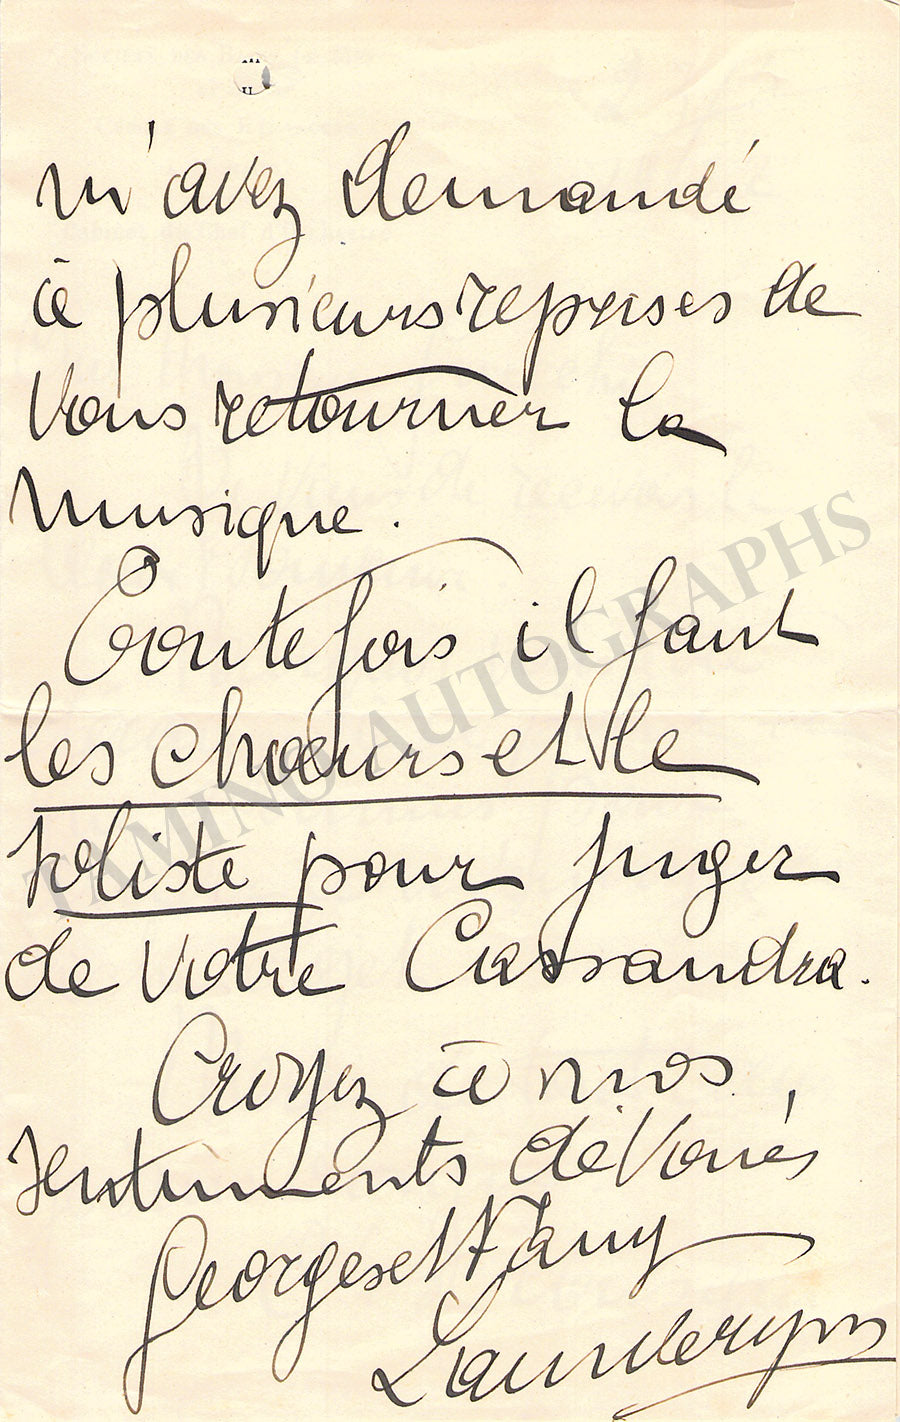 m'avez demandé
à plusieurs reprises de
vous retourner la
musique.
Toutefois il faut
les chœurs et le
soliste pour juger
de votre Cassandra.
Croyez à nos
sentiments dévoués
Georges et Fany
TAMINO AUTOGRAPHS